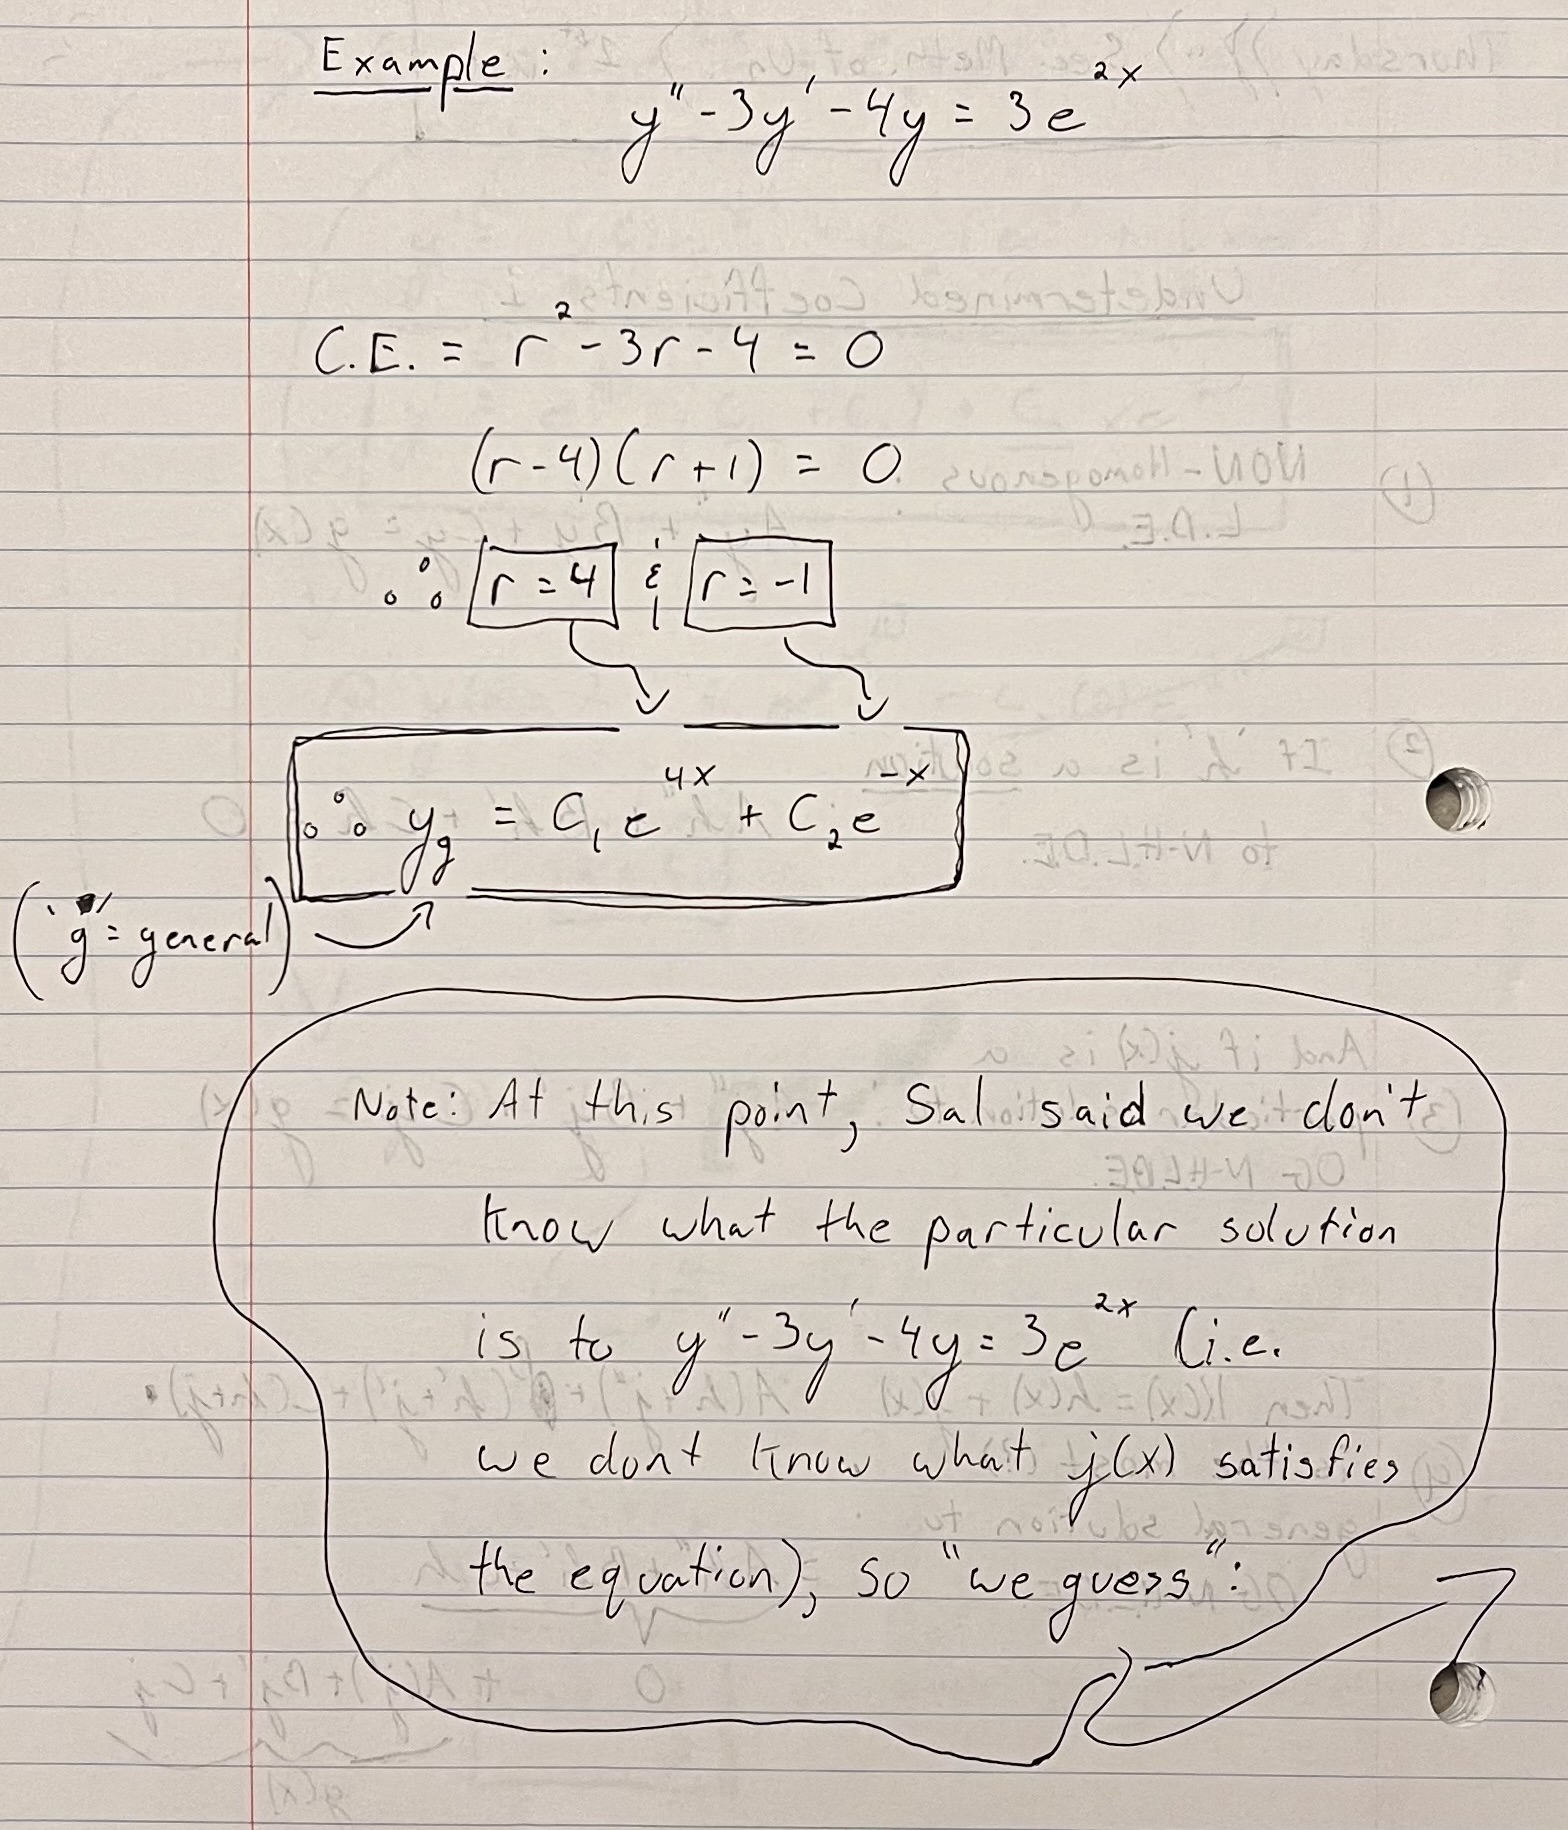 Example:
y'' - 3y' - 4y = 3e^2x
C.E. = r² - 3r - 4 = 0
(r - 4)(r + 1) = 0
∴ r = 4 & r = -1
∴ y_g = C₁e^4x + C₂e^-x
(g = general)
Note: At this point, Sal said we don't
know what the particular solution
is to y'' - 3y' - 4y = 3e^2x (i.e.
we dont know what j(x) satisfies
the equation), so "we guess":